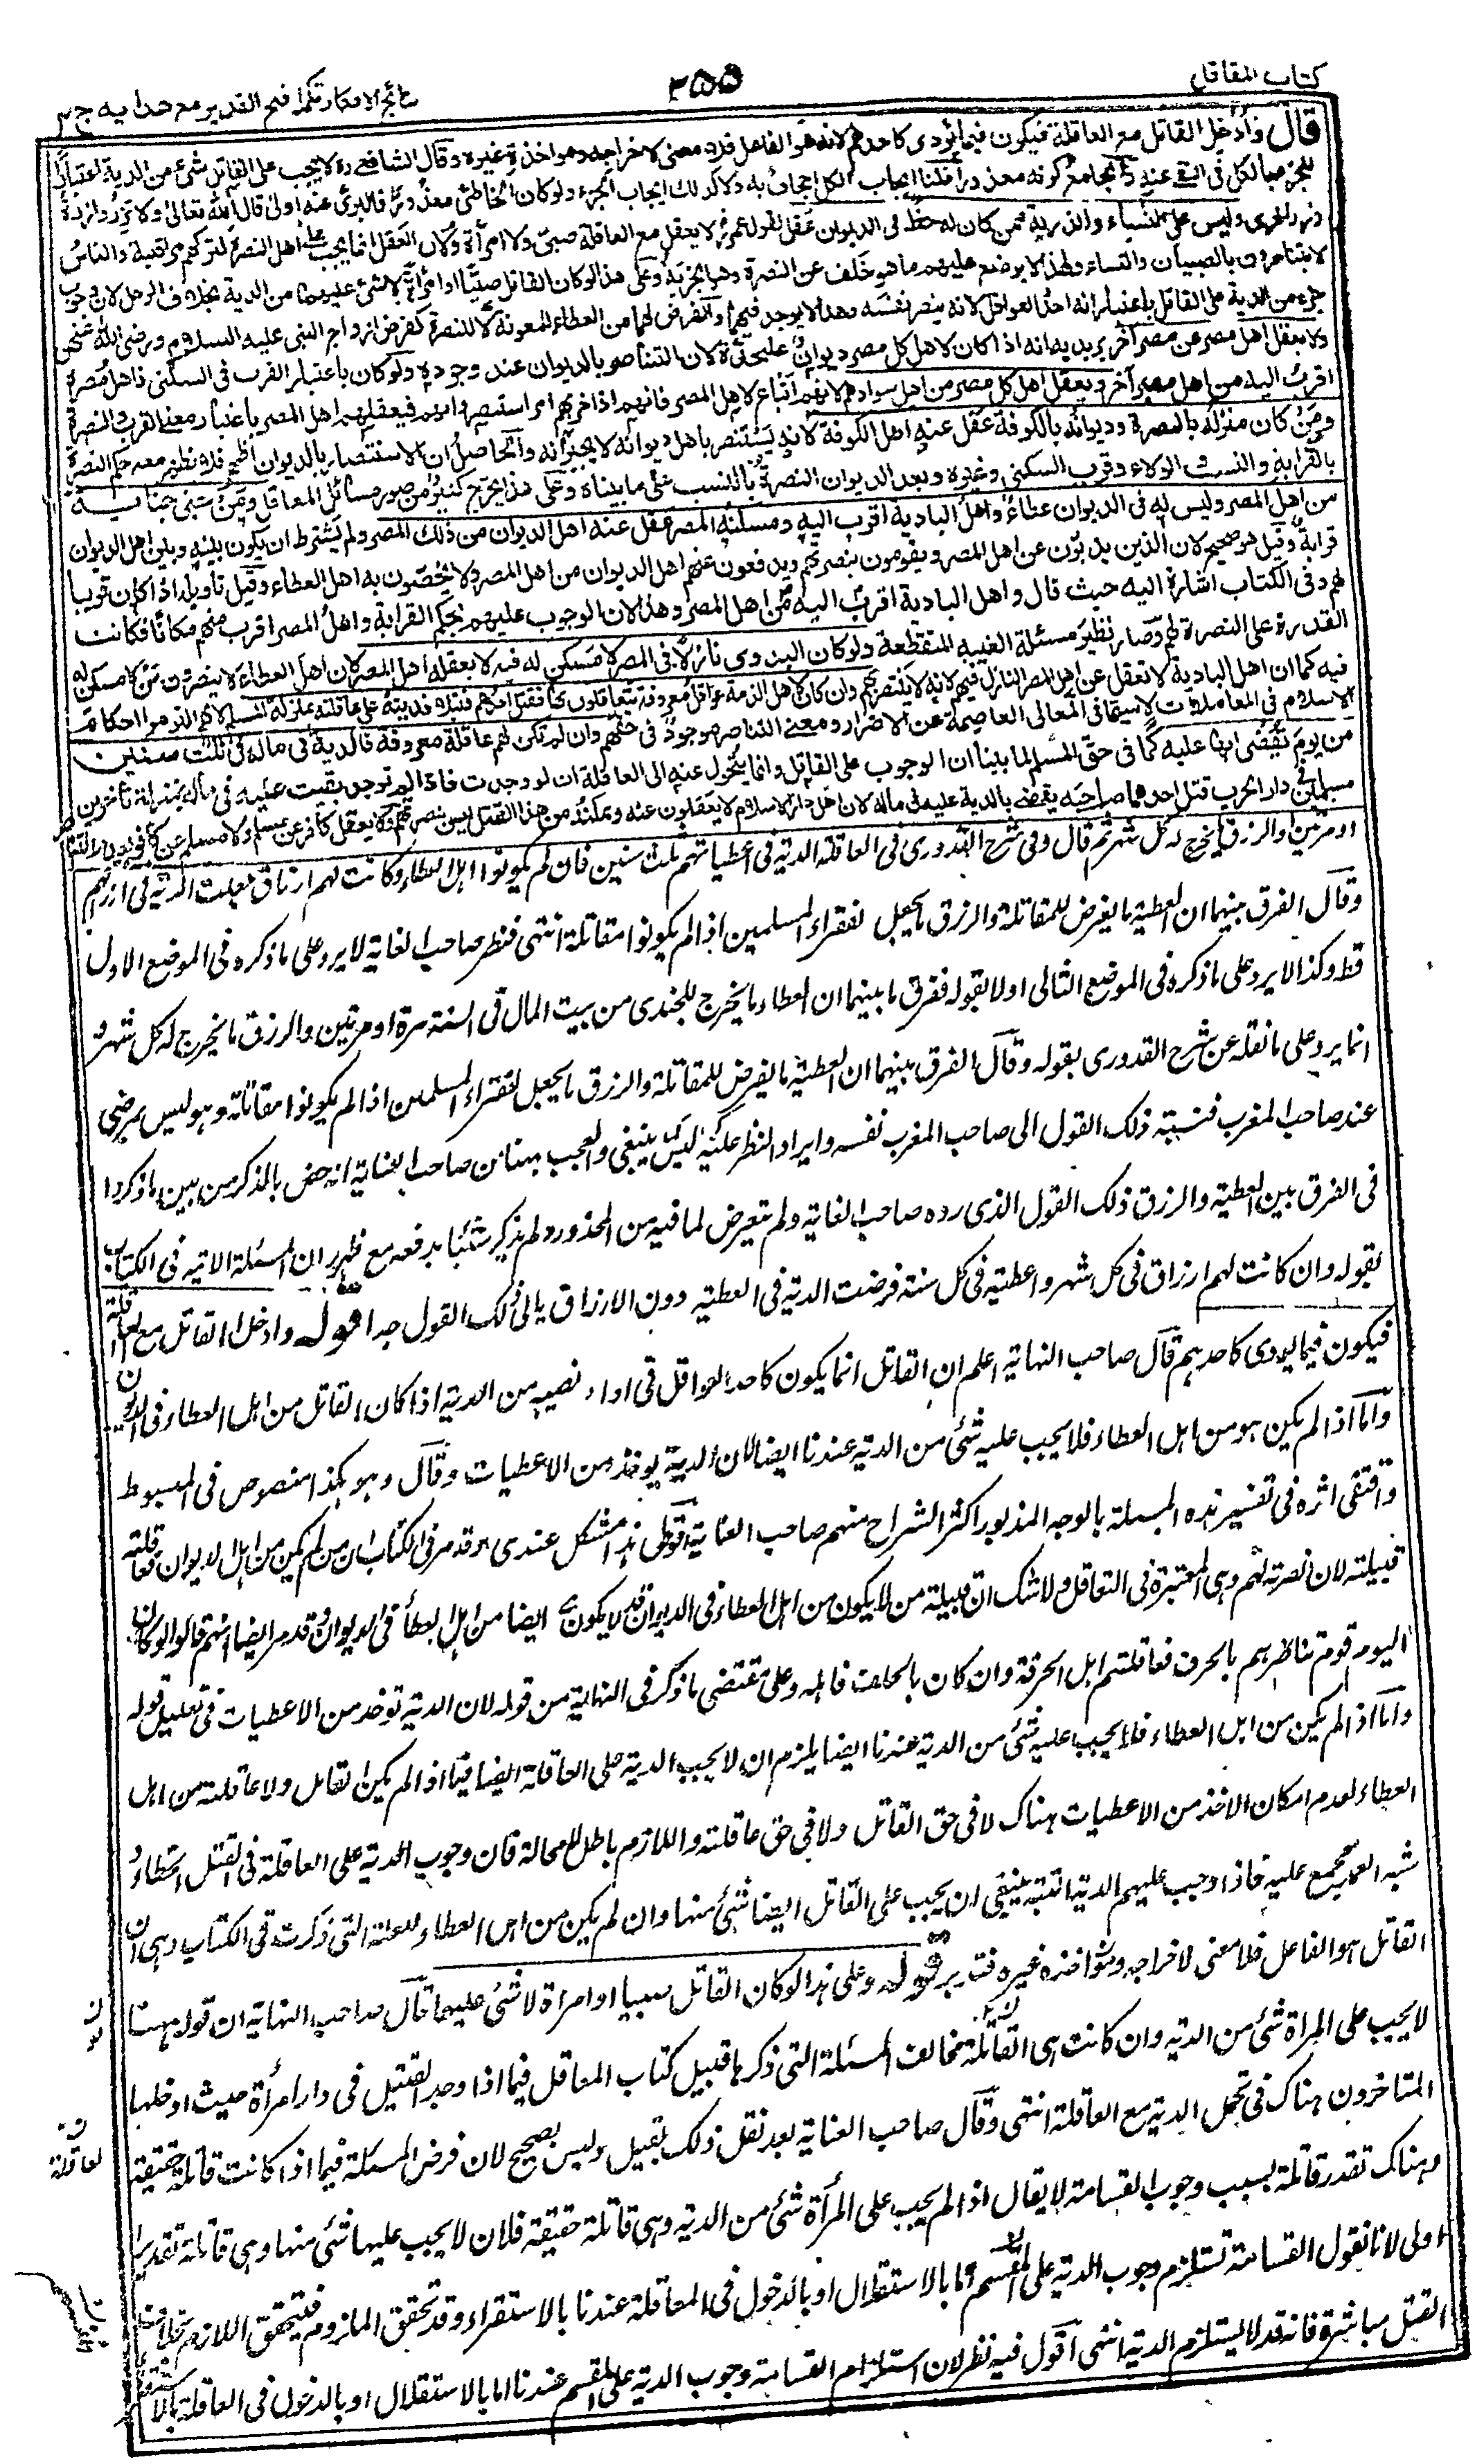 كتاب المعاقل
٣٥٥
نتائج الافكار تكملة فتح القدير مع هدايه ج ٣
قال وادخل القاتل مع العاقلة فيكون فيما يؤدى كاحدهم لانه هو الفاعل فلا معنى لاخراجه ومواخذة غيره وقال الشافعى رح لا يجب على القاتل شئ من الدية اعتبارا
للجزء بالكل فى النفى عنه والجامع كونه معذورا قلنا ايجاب الكل اجحاف به ولا كذلك ايجاب الجزء ولو كان الخاطئ معذورا فالبرئ عنه اولى قال الله تعالى ولا تزر وازرة
وزر اخرى وليس على النساء والذرية ممن كان له حظ فى الديوان عقل لقول عمر رض لا يعقل مع العاقلة صبى ولا امرأة ولان العقل انما يجب على اهل النصرة لتركهم مراقبته والناس
لا يتناصرون بالصبيان والنساء ولهذا لا يوضع عليهم ما هو خلف عن النصرة وهو الجزية وعلى هذا لو كان القاتل صبيا او امرأة لا شئ عليهما من الدية بخلاف الرجل لان وجوب
جزء من الدية على القاتل باعتبار انه احد العواقل لانه ينصر نفسه وهذا لا يوجد فيهما والفرض لهما من العطاء للمعونة لا للنصرة كفرض ازواج النبى عليه السلام ورضى الله عنهن
ولا يعقل اهل مصر عن مصر آخر يريد به انه اذا كان لاهل كل مصر ديوان على حدة لان التناصر بالديوان عند وجوده ولو كان باعتبار القرب فى السكنى فاهل مصره
اقرب اليه من اهل مصر آخر ويعقل اهل كل مصر من اهل سوادهم لانهم اتباع لاهل المصر فانهم اذا حزبهم امر استنصروا بهم فيعقلهم اهل المصر باعتبار معنى القرب والنصرة
ومن كان منزله بالبصرة وديوانه بالكوفة عقل عنه اهل الكوفة لانه يستنصر باهل ديوانه لا بجيرانه والحاصل ان الاستنصار بالديوان اظهر فلا يظهر معه حكم النصرة
بالقرابة والنسب والولاء وقرب السكنى وغيره وبعد الديوان النصرة بالنسب على ما بيناه وعلى هذا يخرج كثير من صور مسائل المعاقل ومن جنى جناية
من اهل المصر وليس له فى الديوان عطاء واهل البادية اقرب اليه ومسكنه المصر عقل عنه اهل الديوان من ذلك المصر ولم يشترط ان يكون بينه وبين اهل الديوان
قرابة وقيل هو صحيح لان الذين يذبون عن اهل المصر ويقومون بنصرتهم ويدفعون عنهم اهل الديوان من اهل المصر ولا يخصون به اهل العطاء وقيل تاويله اذا كان قريبا
لهم وفى الكتاب اشارة اليه حيث قال واهل البادية اقرب اليه من اهل المصر وهذا لان الوجوب عليهم بحكم القرابة واهل المصر اقرب منهم مكانا فكانت
القدرة على النصرة لهم وصار نظير مسئلة الغيبة المنقطعة ولو كان البدوى نازلا فى المصر لا مسكن له فيه لا يعقله اهل المصر لان اهل العطاء لا ينصرون من لا مسكن له
فيه كما ان اهل البادية لا تعقل عن اهل المصر النازل فيهم لانه لا يستنصر بهم وان كان لاهل الذمة عواقل معروفة يتعاقلون بها فقتل احدهم قتيلا فديته على عاقلته بمنزلة المسلم لانهم التزموا احكام
الاسلام فى المعاملات لا سيما فى المعانى العاصمة عن الاضرار ومعنى التناصر موجود فى حقهم وان لم تكن لهم عاقلة معروفة فالدية فى ماله فى ثلث سنين
من يوم يقضى بها عليه كما فى حق المسلم لما بينا ان الوجوب على القاتل وانما يتحول عنه الى العاقلة ان لو وجدت فاذا لم توجد بقيت عليه فى ماله بمنزلة تاجرين
مسلمين فى دار الحرب قتل احدهما صاحبه يقضى بالدية عليه فى ماله لان اهل دار الاسلام لا يعقلون عنه وتمكنه من هذا القتل ليس بنصرتهم ولا يعقل كافر عن مسلم ولا مسلم عن كافر لعدم التناصر
او مرتين والرزق ما يخرج له كل شهر ثم قال وفى شرح القدورى فى العاقلة الدية فى اعطياتهم ثلث سنين فان لم يكونوا اهل العطاء وكانت لهم ارزاق جعلت الدية فى ارزاقهم
وقال الفرق بينهما ان العطية ما يفرض للمقاتلة والرزق ما يجعل لفقراء المسلمين اذا لم يكونوا مقاتلة انتهى فنظر صاحب الغاية لا يرد على ما ذكره فى الموضع الاول
قط وكذا لا يرد على ما ذكره فى الموضع الثانى اولا بقوله ففرق ما بينهما ان العطاء ما يخرج للجندى من بيت المال فى السنة مرة او مرتين والرزق ما يخرج له كل شهر و
انما يرد على ما نقله عن شرح القدورى بقوله وقال الفرق بينهما ان العطية ما يفرض للمقاتلة والرزق ما يجعل لفقراء المسلمين اذا لم يكونوا مقاتلة وهو ليس بمرضى
عند صاحب المغرب فنسبة ذلك القول الى صاحب المغرب نفسه وايراد النظر عليه ليس كما ينبغى والعجب ههنا من صاحب العناية انه خص بالذكر من بين ما ذكروا
فى الفرق بين العطية والرزق ذلك القول الذى رده صاحب الغاية ولم يتعرض لما فيه من المحذور ولم يذكر شيئا يدفعه مع ظهور ان المسئلة الآتية فى الكتاب
بقوله وان كانت لهم ارزاق فى كل شهر واعطية فى كل سنة فرضت الدية فى العطية دون الارزاق يابى ذلك القول جدا قوله وادخل القاتل مع العاقلة
فيكون فيما يودى كاحدهم قال صاحب النهاية اعلم ان القاتل انما يكون كاحد العواقل فى اداء نصيبه من الدية اذا كان القاتل من اهل العطاء فى الديوان
واما اذا لم يكن هو من اهل العطاء فلا يجب عليه شئ من الدية عندنا ايضا لان الدية يوخذ من الاعطيات وقال وهو هكذا منصوص فى المبسوط
واقتفى اثره فى تفسير هذه المسئلة بالوجه المذبور اكثر الشراح منهم صاحب العناية اقول هذا مشكل عندى اذ قد مر فى الكتاب ان من لم يكن من اهل الديوان فعاقلته
قبيلته لان نصرته بهم وهى المعتبرة فى التعاقل ولا شك ان قبيلة من لا يكون من اهل العطاء فى الديوان قد لا يكون ايضا من اهل العطاء فى الديوان وقد مر ايضا انهم قالوا لو كان
اليوم قوم تناصرهم بالحرف فعاقلتهم اهل الحرفة وان كان بالحلف فاهله وعلى مقتضى ما ذكر فى النهاية من قوله لان الدية توخذ من الاعطيات فى تعليل قوله
واما اذا لم يكن من اهل العطاء فلا يجب عليه شئ من الدية عندنا ايضا يلزم ان لا يجب الدية على العاقلة ايضا فيما اذا لم يكن القاتل ولا عاقلته من اهل
العطاء لعدم امكان الاخذ من الاعطيات هناك لا فى حق القاتل ولا فى حق عاقلته واللازم باطل لا محالة فان وجوب الدية على العاقلة فى القتل الخطاء و
شبه العمد مجمع عليه فاذا وجب عليهم الدية البتة ينبغى ان يجب على القاتل ايضا شئ منها وان لم يكن من اهل العطاء للعلة التى ذكرت فى الكتاب وهى ان
القاتل هو الفاعل فلا معنى لاخراجه ومواخذة غيره فتدبر قوله وعلى هذا لو كان القاتل صبيا او امراة لا شئ عليهما قال صاحب النهاية ان قوله ههنا
لا يجب على المراة شئ من الدية وان كانت هى القاتلة مخالف للمسئلة التى ذكرها قبيل كتاب المعاقل فيما اذا وجد القتيل فى دار امرأة حيث ادخلها
المتاخرون هناك فى تحمل الدية مع العاقلة انتهى وقال صاحب العناية بعد نقل ذلك بقيل وليس بصحيح لان فرض المسئلة فيما اذا كانت قاتلة حقيقة
وهناك تقدر قاتلة بسبب وجوب القسامة لا يقال اذا لم يجب على المرأة شئ من الدية وهى قاتلة حقيقة فلان لا يجب عليها شئ منها وهى قاتلة تقديرا
اولى لانا نقول القسامة تستلزم وجوب الدية على المقسم اما بالاستقلال او بالدخول فى العاقلة عندنا بالاستقراء وقد تحقق الملزوم فيتحقق اللازم بخلاف
القتل مباشرة فانه قد لا يستلزم الدية انتهى اقول فيه نظر لان استلزام القسامة وجوب الدية على المقسم عندنا اما بالاستقلال او بالدخول فى العاقلة بالاستقراء